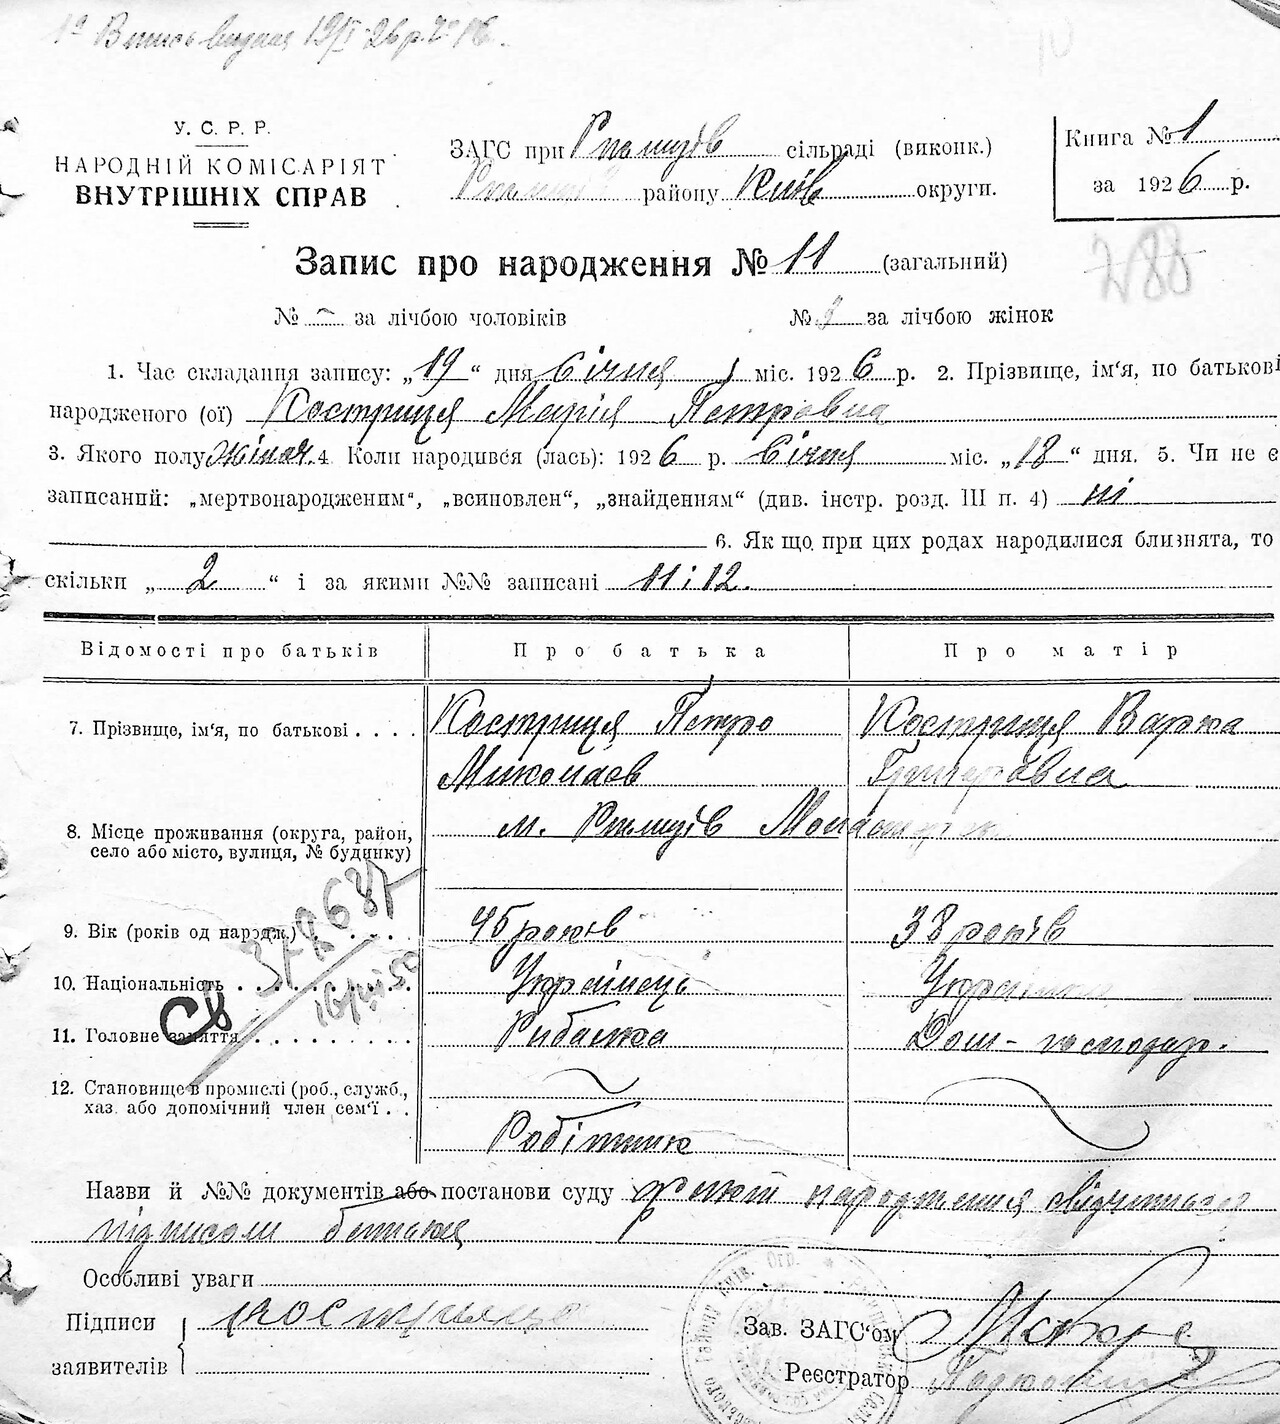 У. С. Р. Р.
НАРОДНІЙ КОМІСАРІЯТ
ВНУТРІШНІХ СПРАВ
ЗАГС при Ржищів сільраді (виконк.)
Ржищів району Київ округи.
Книга № 1
за 1926 р.
Запис про народження № 11 (загальний)
788
№ - за лічбою чоловіків № 3 за лічбою жінок
1. Час складання запису: „19“ дня Січня міс. 1926 р. 2. Прізвище, ім'я, по батькові
народженого (ої) Костриця Марія Петровна
3. Якого полу жіноч. 4. Коли народився (лась): 1926 р. Січня міс. „18“ дня. 5. Чи не є
записаний: „мертвонародженим“, „всиновлен“, „знайденням“ (див. інстр. розд. III п. 4) ні
6. Як що при цих родах народилися близнята, то
скільки „2“ і за якими №№ записані 11 і 12.
Відомості про батьків Про батька Про матір
7. Прізвище, ім‘я, по батькові Костриця Петро Костриця Варка
Миколаєв Григоровна
8. Місце проживання (округа, район, м. Ржищів
село або місто, вулиця, № будинку)
9. Вік (років од народж.) 45 років 38 років
10. Національність Українець Українка
11. Головне заняття Рибалка Дом-господар.
12. Становище в промислі (роб., служб.,
хаз. або допомічний член сем‘ї Робітник
Назви й №№ документів або постанови суду факт народження свідчиться
підписом батька
Особливі уваги
Підписи Костриця
заявителів
Зав. ЗАГС‘ом
Реєстратор